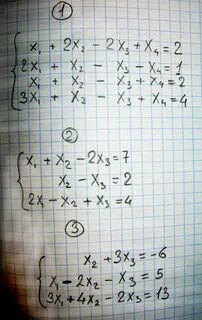 1
x₁ + 2x₂ - 2x₃ + x₄ = 2
2x₁ + x₂ - x₃ - x₄ = 1
x₁ + x₂ - x₃ + x₄ = 2
3x₁ + x₂ - x₃ + x₄ = 4
2
x₁ + x₂ - 2x₃ = 7
x₂ - x₃ = 2
2x₁ - x₂ + x₃ = 4
3
x₂ + 3x₃ = -6
x₁ - 2x₂ - x₃ = 5
3x₁ + 4x₂ - 2x₃ = 13